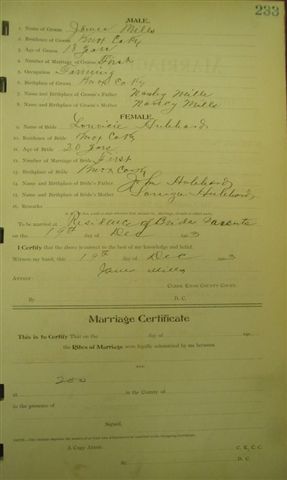 233
MALE.
1. Name of Groom James Mills
2. Residence of Groom Knox Co Ky
3. Age of Groom 18 Years
4. Number of Marriage of Groom First
5. Occupation Farming
6. Birthplace of Groom Knox Co Ky
7. Name and Birthplace of Groom's Father Mills
8. Name and Birthplace of Groom's Mother Nancy Mills
FEMALE.
9. Name of Bride Hubbard
10. Residence of Bride Knox Co Ky
11. Age of Bride 20 Years
12. Number of Marriage of Bride First
13. Birthplace of Bride Knox Co Ky
14. Name and Birthplace of Bride's Father Hubbard
15. Name and Birthplace of Bride's Mother Hubbard
16. Remarks
To be married at Residence of Brides Parents
on the 19th day of Dec 3
I Certify that the above is correct to the best of my knowledge and belief.
Witness my hand, this 19th day of Dec 3
James Mills
Attest:
CLERK KNOX COUNTY COURT.
By D. C.
Marriage Certificate
This is to Certify That on the day of
the Rites of Marriage were legally solemnized by me between
and
at in the County of
in the presence of
Signed,
A Copy Attest: C. K. C. C.
By D. C.